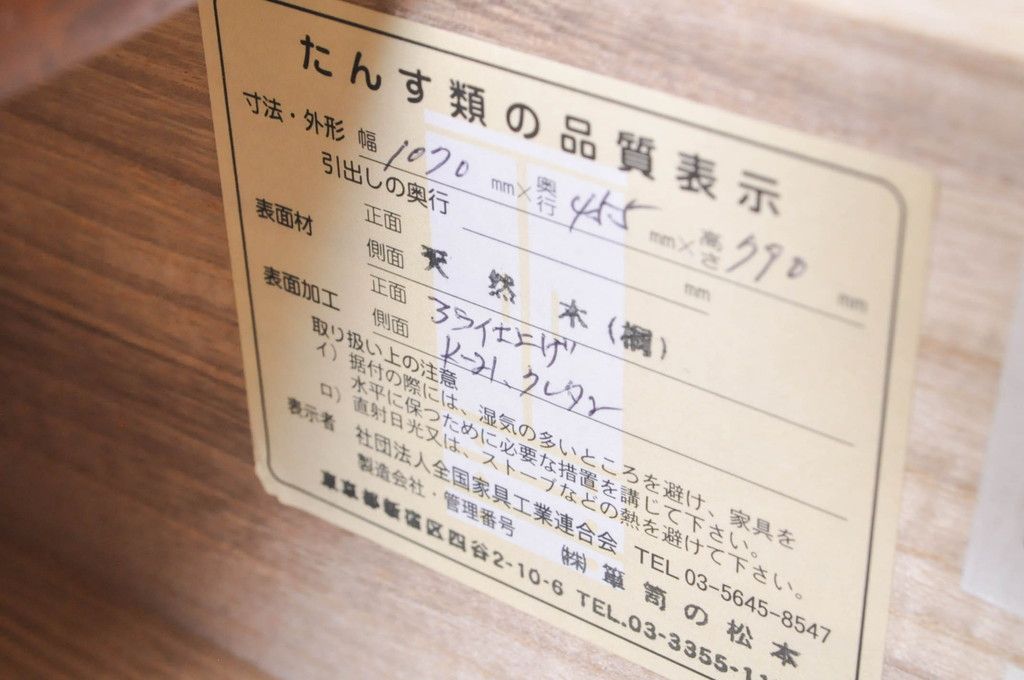 たんす類の品質表示
寸法・外形 幅 1070 mm× 奥行 455 mm× 高さ 790 mm
引出しの奥行 mm
表面材 正面
側面 天然木(桐)
表面加工 正面
側面
取り扱い上の注意
イ) 据付の際には、湿気の多いところを避け、家具を
水平に保つために必要な措置を講じて下さい。
ロ) 直射日光又は、ストーブなどの熱を避けて下さい。
表示者 社団法人全国家具工業連合会 TEL 03-5645-8547
製造会社・管理番号 ㈱ 箪笥の松本
東京都新宿区四谷2-10-6 TEL.03-3355-1